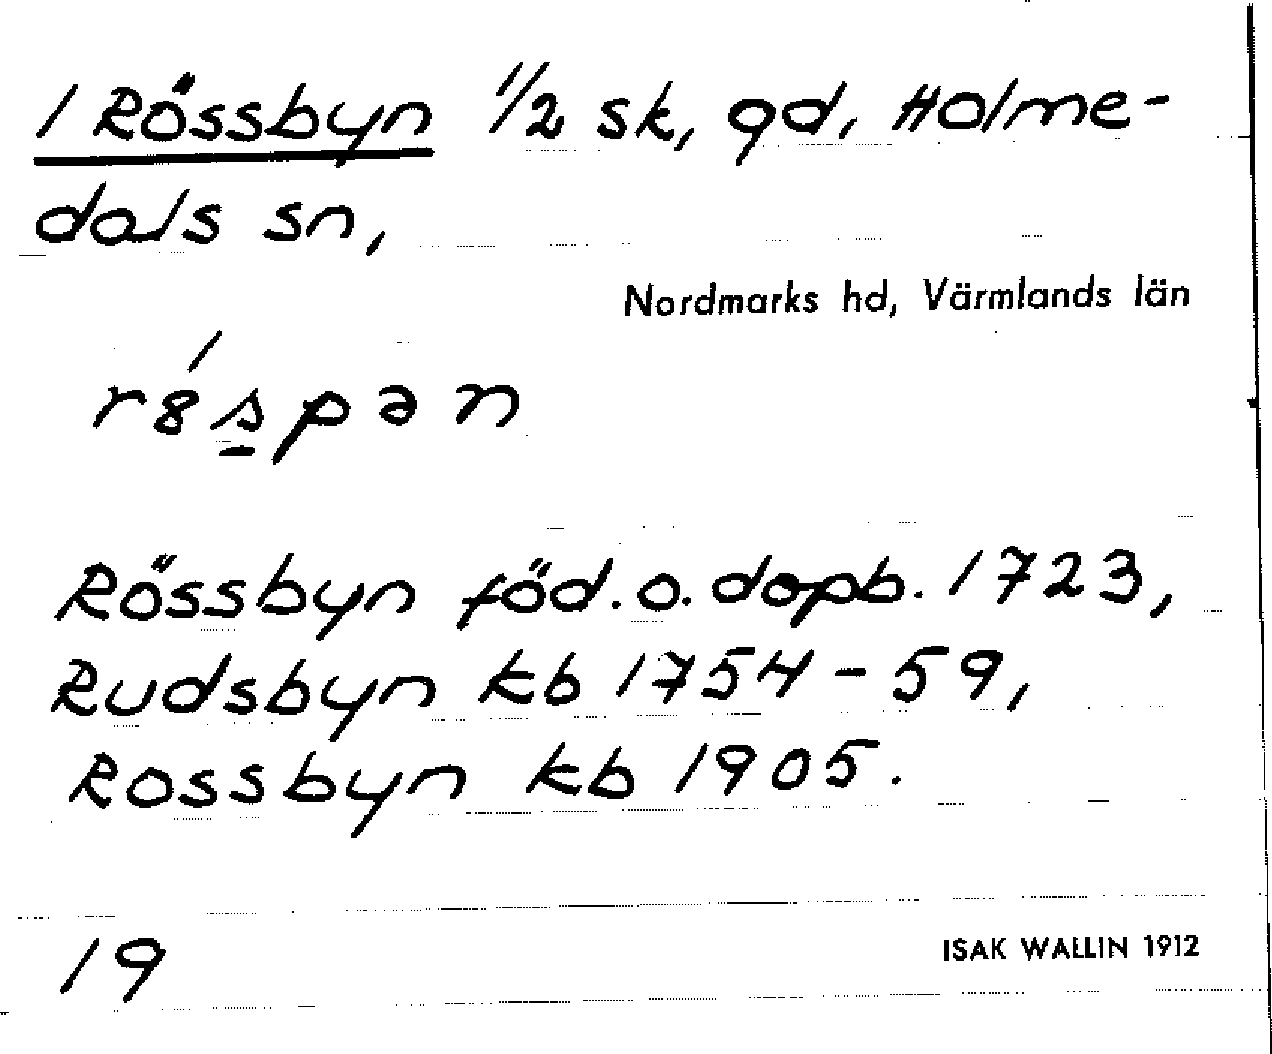 1 Rössbyn 1/2 sk, gd, Holme-
dals sn,
Nordmarks hd, Värmlands län
rȣ́s̠pən
Rössbyn föd.o.dopb. 1723,
Rudsbyn kb 1754-59,
Rossbyn kb 1905.
19
ISAK WALLIN 1912